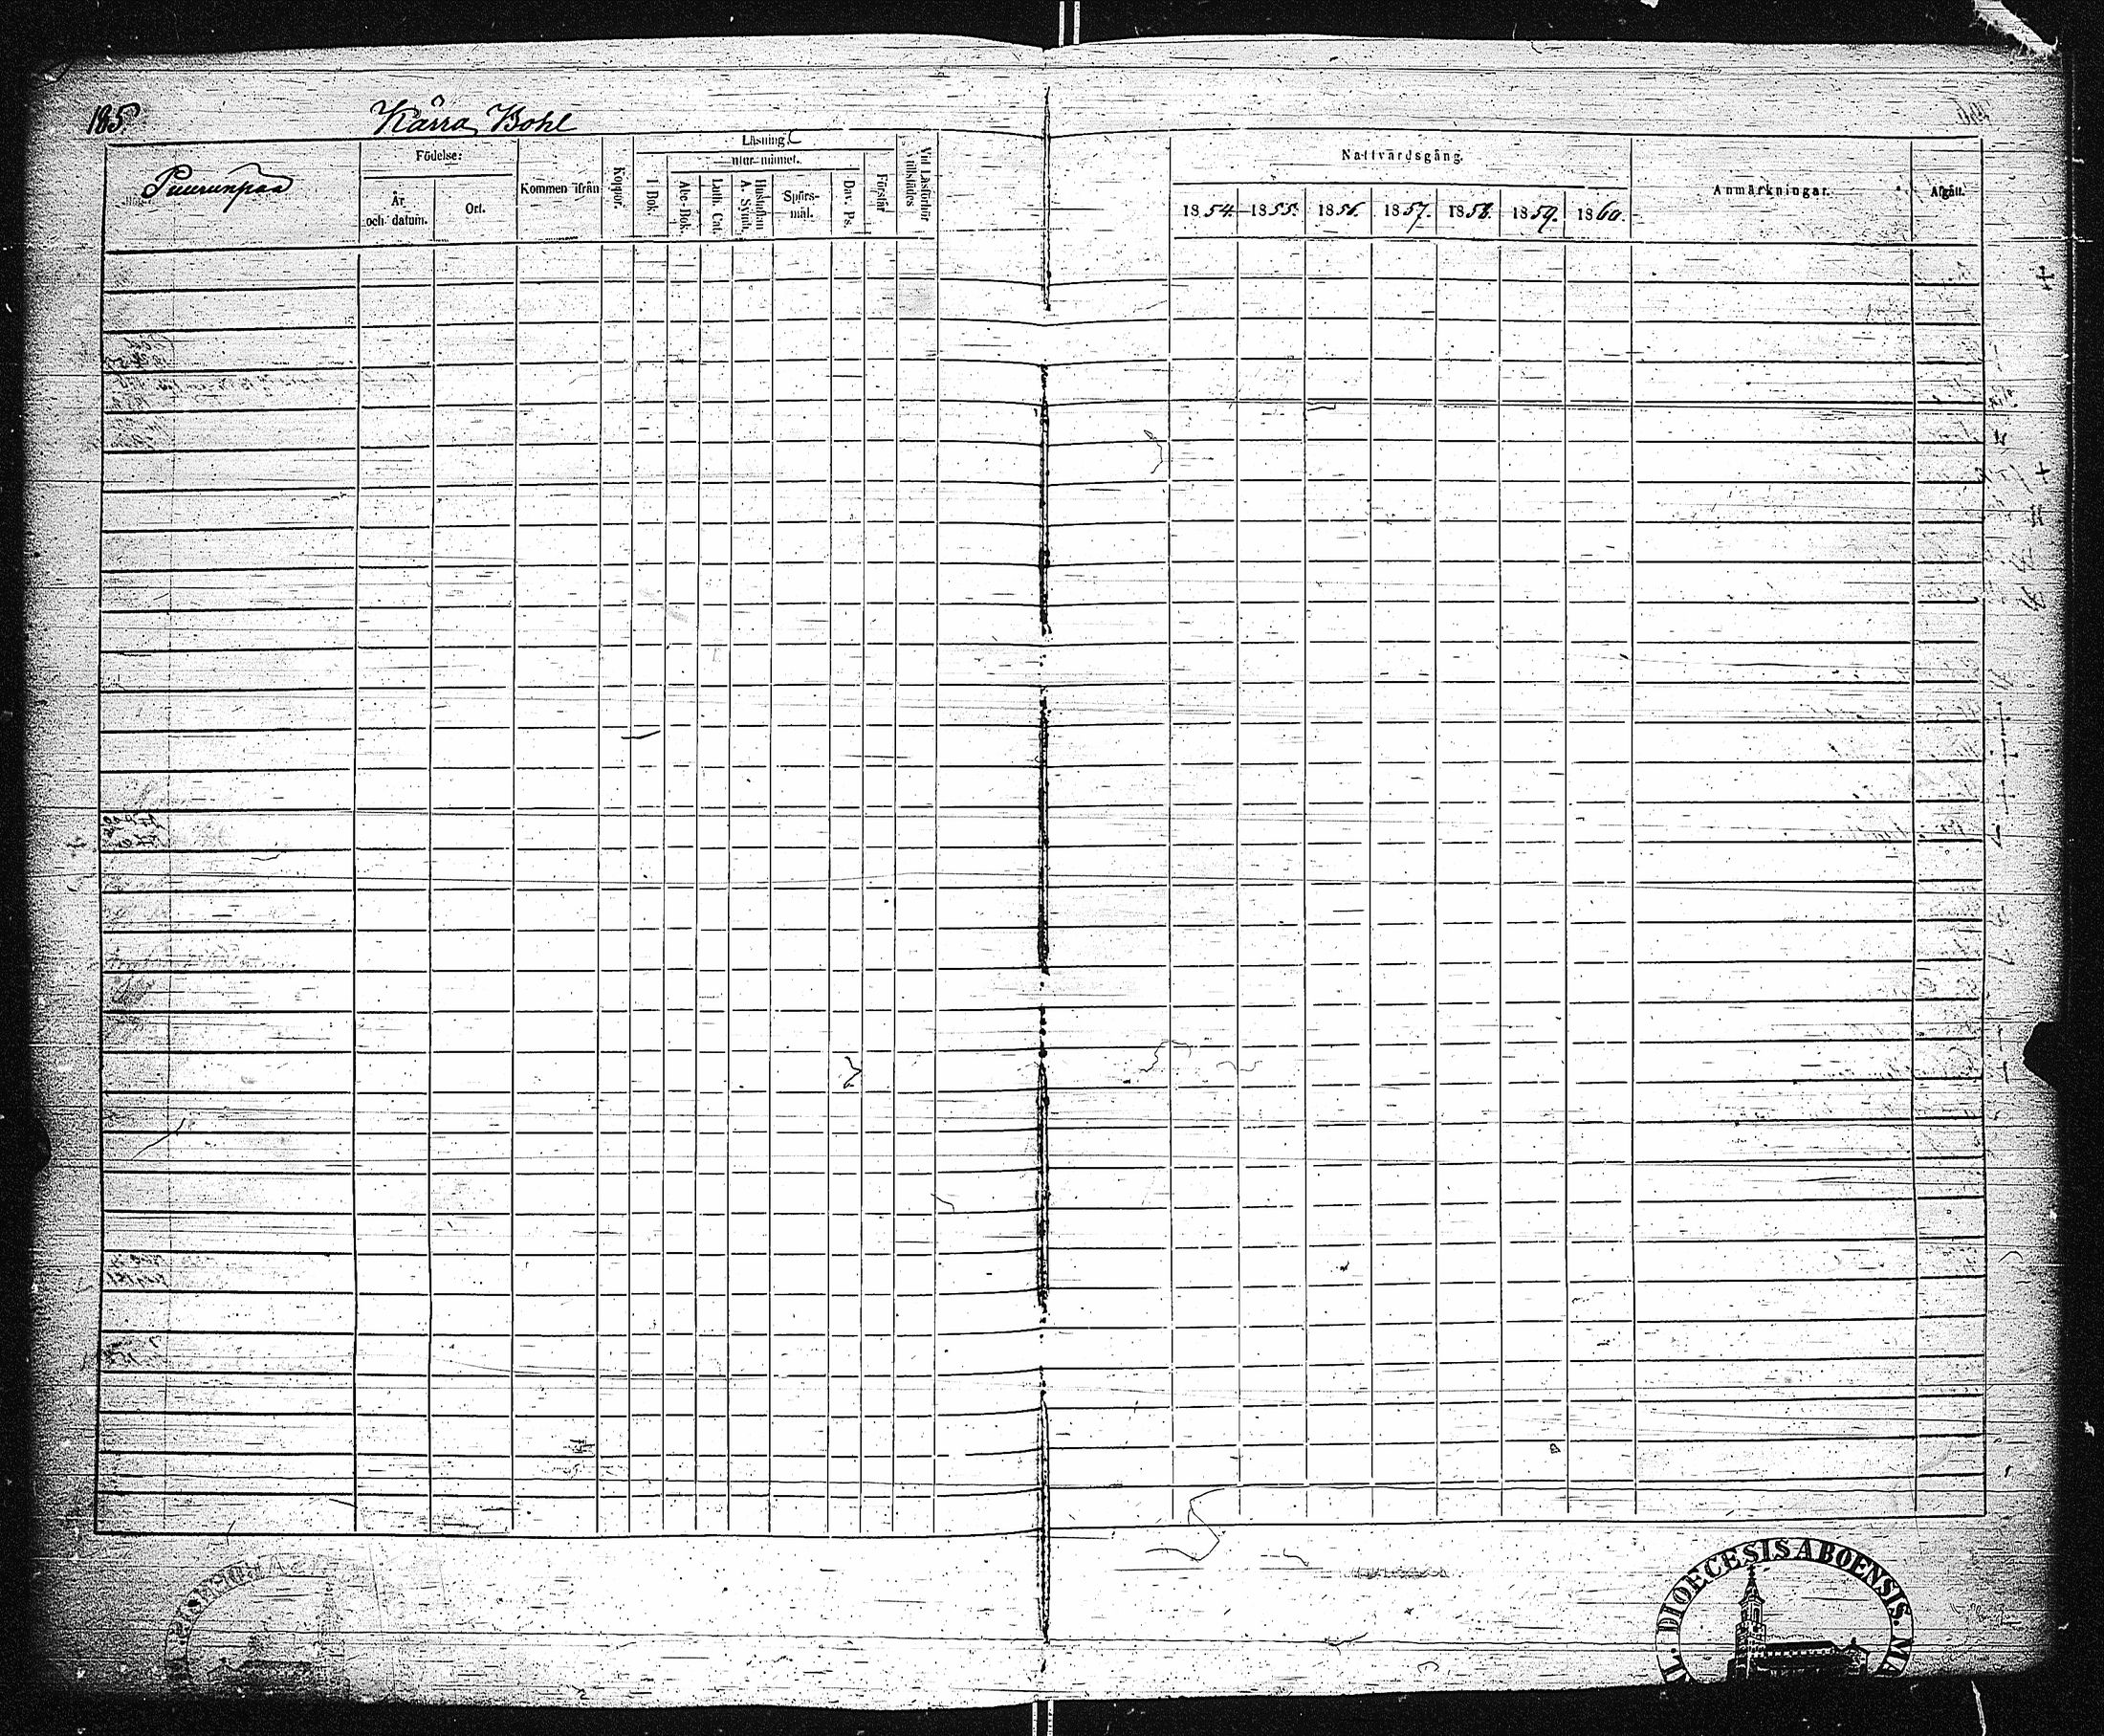 185.
Kårra Bohl
Puurunpää
Födelse:
År och datum.
Ort.
Kommen ifrån
Koppor.
Läsning.
utur minnet.
I Bok.
Abc-Bok.
Luth. Cat.
Hustaflan A. Symb.
Spörs-mål.
Dav. Ps.
Förstår
Vid Läsförhör tillstädes
Nattvardsgång.
1854.
1855.
1856.
1857.
1858.
1859.
1860.
Anmärkningar.
Afgått.
DIOECESIS ABOENSIS. MA